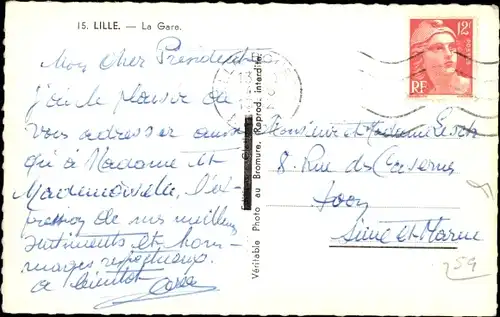 15. LILLE. — La Gare.
Mon Cher Président
j'ai le plaisir de
vous adresser ainsi
qu'à Madame et
Mademoiselle, l'ex-
pression de mes meilleurs
sentiments et hom-
mages respectueux.
à bientôt
Véritable Photo au Bromure. (Reprod. interdite)
12F
POSTES
RF
Monsieur et Madame
8 Rue des Casernes
Avon
Seine et Marne
259